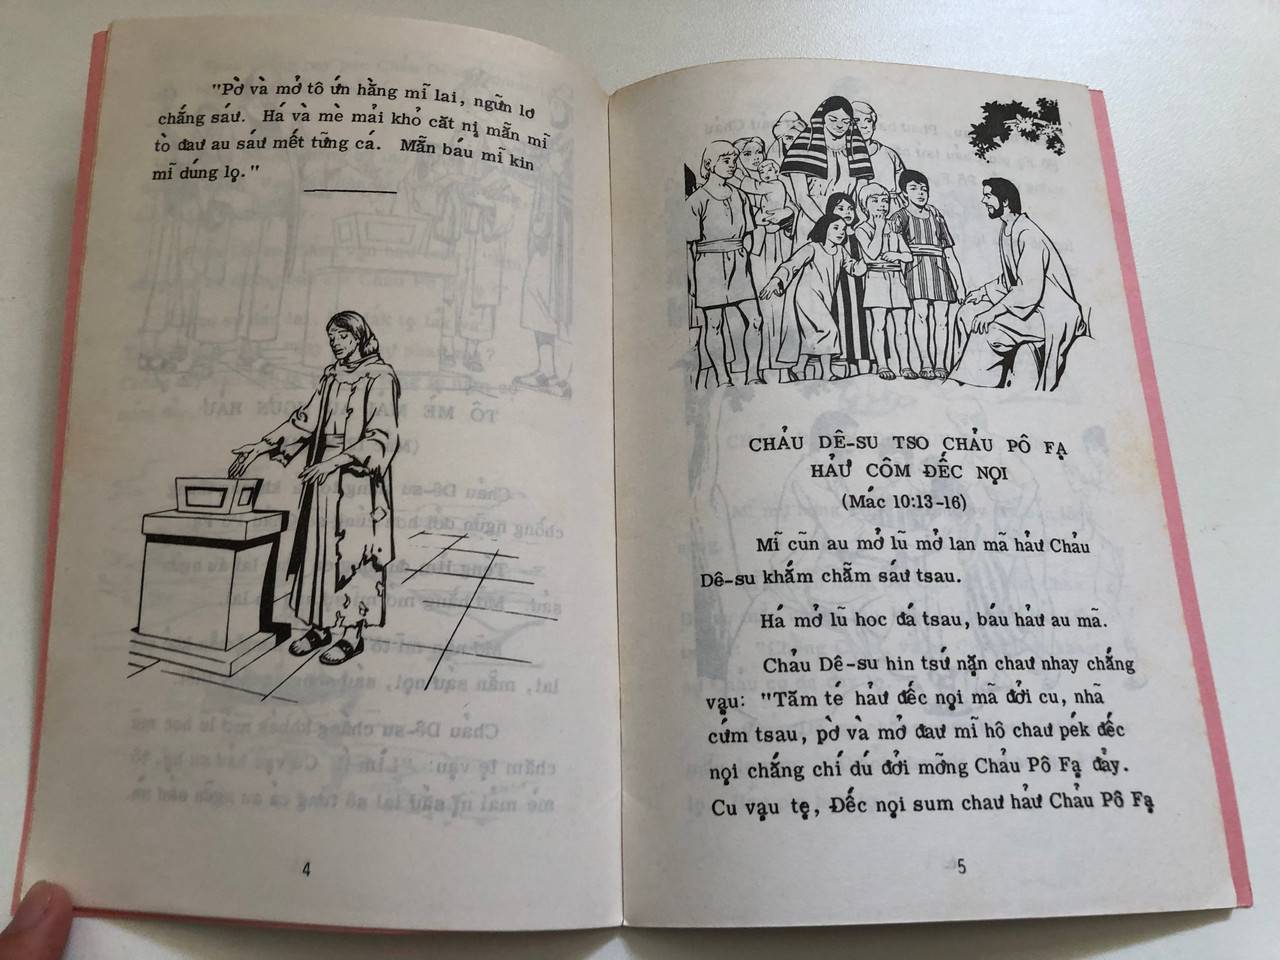 "Pờ và mở tô ứn hằng mĩ lai, ngữn lơ
chắng sáư. Há và mè mải khỏ căt nị mẵn mĩ
tò đaư au sáư mết tững cá. Mẵn báu mĩ kin
mĩ dúng lọ."
4
CHẢU DÊ-SU TSO CHẢU PÔ FẠ
HẢƯ CÔM ĐẾC NỌI
(Mác 10:13-16)
Mĩ cũn au mở lũ mở lan mã hảư Chảu
Dê-su khắm chẵm sáư tsau.
Há mở lũ học đá tsau, báu hảư au mã.
Chảu Dê-su hin tsứ nặn chaư nhay chắng
vạu: "Tăm té hảư đếc nọi mã đởi cu, nhã
cứm tsau, pờ và mở đaư mĩ hô chaư pék đếc
nọi chắng chí dú đởi mỡng Chảu Pô Fạ đảy.
Cu vạu tẹ, Đếc nọi sum chaư hảư Chảu Pô Fạ
5